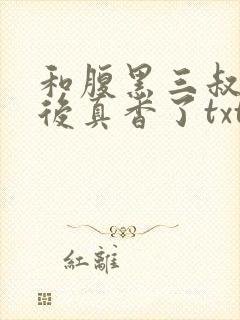 和腹黑三叔
後真香了txt
紅離